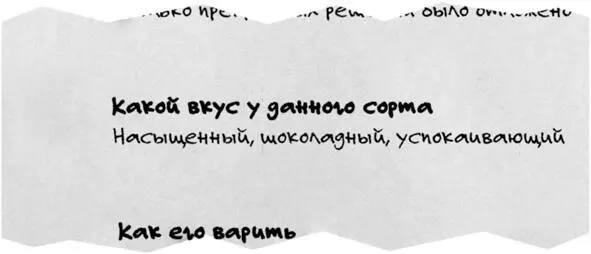 было отложено
Какой вкус у данного сорта
Насыщенный, шоколадный, успокаивающий
Как его варить